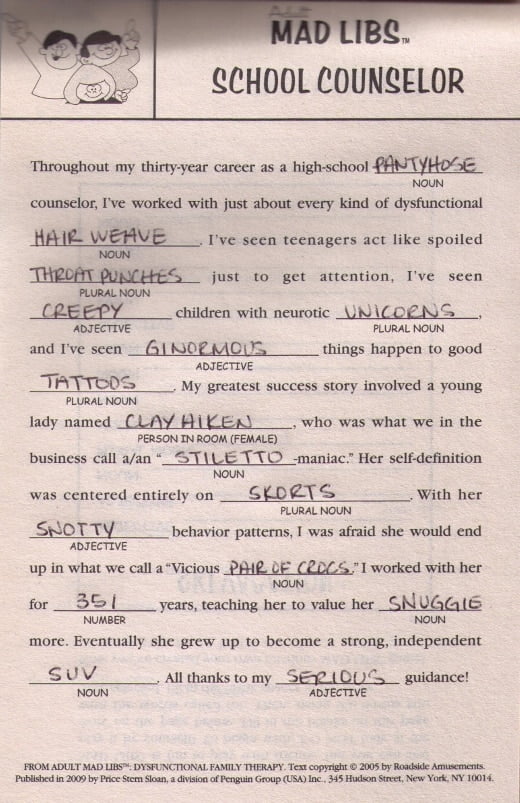 Adult
MAD LIBS™
SCHOOL COUNSELOR
Throughout my thirty-year career as a high-school PANTYHOSE
NOUN
counselor, I've worked with just about every kind of dysfunctional
HAIR WEAVE. I've seen teenagers act like spoiled
NOUN
THROAT PUNCHES just to get attention, I've seen
PLURAL NOUN
CREEPY children with neurotic UNICORNS,
ADJECTIVE PLURAL NOUN
and I've seen GINORMOUS things happen to good
ADJECTIVE
TATTOOS. My greatest success story involved a young
PLURAL NOUN
lady named CLAY AIKEN, who was what we in the
PERSON IN ROOM (FEMALE)
business call a/an “STILETTO-maniac.” Her self-definition
NOUN
was centered entirely on SKORTS. With her
PLURAL NOUN
SNOTTY behavior patterns, I was afraid she would end
ADJECTIVE
up in what we call a “Vicious PAIR OF CROCS.” I worked with her
NOUN
for 351 years, teaching her to value her SNUGGIE
NUMBER NOUN
more. Eventually she grew up to become a strong, independent
SUV. All thanks to my SERIOUS guidance!
NOUN ADJECTIVE
FROM ADULT MAD LIBS™: DYSFUNCTIONAL FAMILY THERAPY. Text copyright © 2005 by Roadside Amusements.
Published in 2009 by Price Stern Sloan, a division of Penguin Group (USA) Inc., 345 Hudson Street, New York, NY 10014.